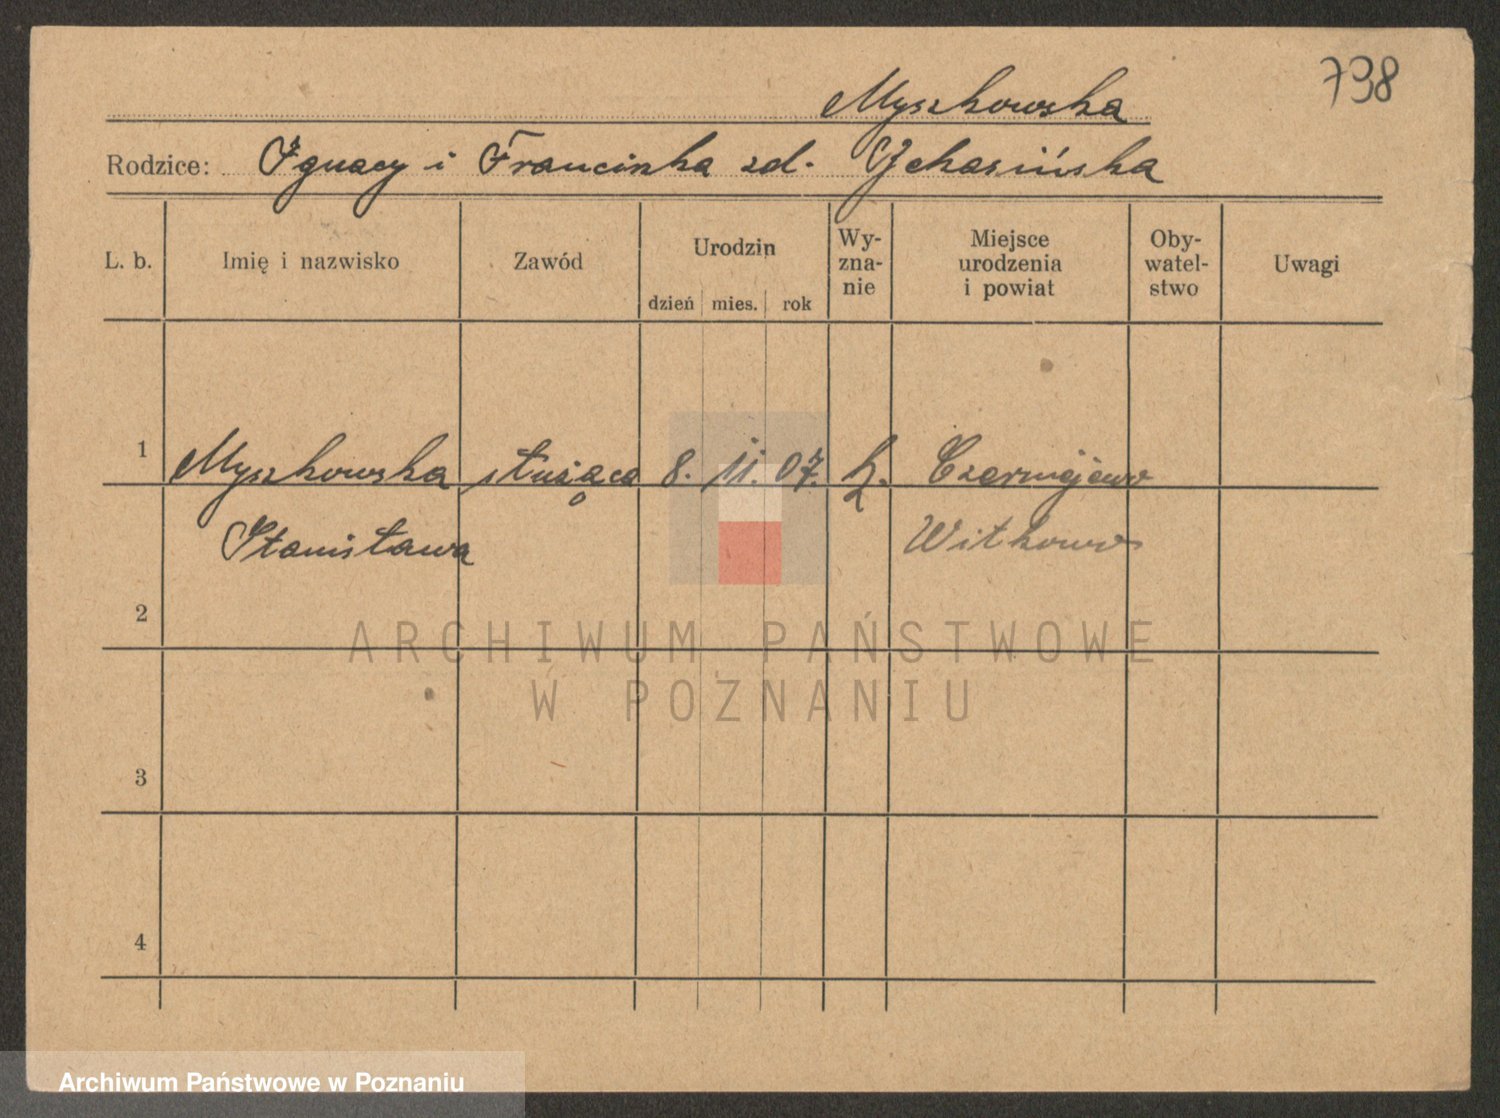 738
Myszkowska
Rodzice: Ignacy i Franciszka zd.
L. b. Imię i nazwisko Zawód Urodzin dzień mies. rok Wy-zna-nie Miejsce urodzenia i powiat Oby-watel-stwo Uwagi
1 Myszkowska służąca 8. 11. 07. k. Czerniejewo
Stanisława Witkowo
2
ARCHIWUM PAŃSTWOWE
W POZNANIU
3
4
Archiwum Państwowe w Poznaniu